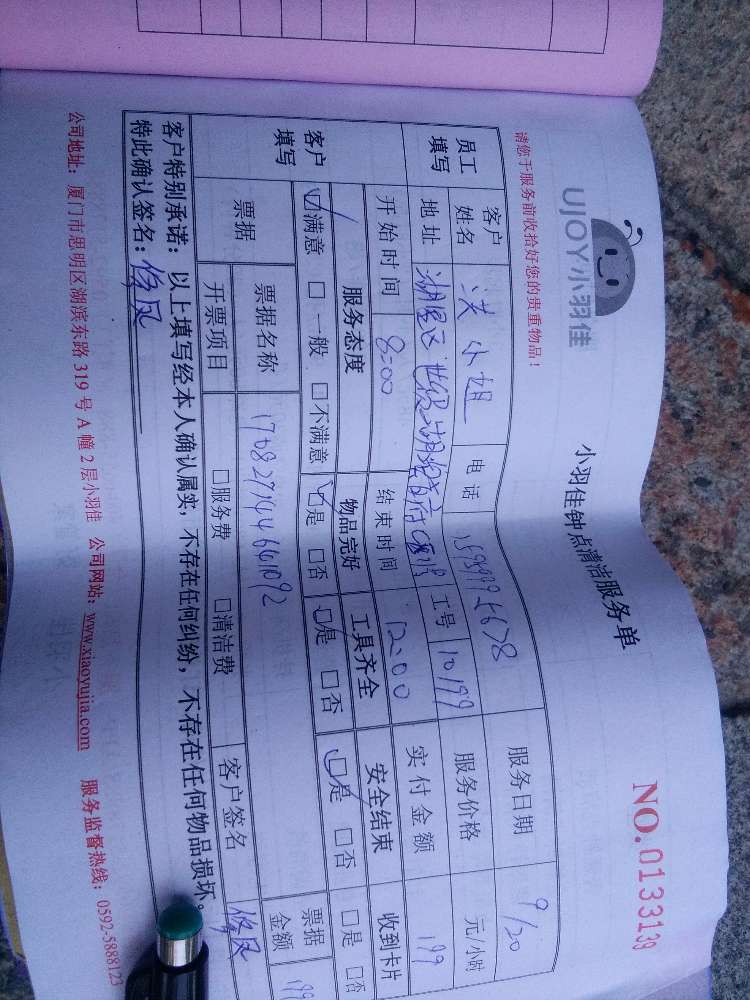 UJOY小羽佳
小羽佳钟点清洁服务单
NO.0133139
请您于服务前收拾好您的贵重物品！
员工填写
客户姓名 洪小姐 电话 服务日期 9/20
地址 湖里区 工号 10199 服务价格 元/小时
开始时间 8:00 结束时间 12:00 实付金额 199
客户填写
服务态度 物品完好 工具齐全 安全结束 收到卡片
☑满意 □一般 □不满意 ☑是 □否 ☑是 □否 ☑是 □否 □是 □否
票据 票据名称 票据金额 199
开票项目 □服务费 □清洁费 客户签名
客户特别承诺：以上填写经本人确认属实，不存在任何纠纷，不存在任何物品损坏。
特此确认签名：
公司地址：厦门市思明区湖滨东路 319 号 A 幢 2 层小羽佳 公司网站：www.xiaoyujia.com 服务监督热线：0592-5888123